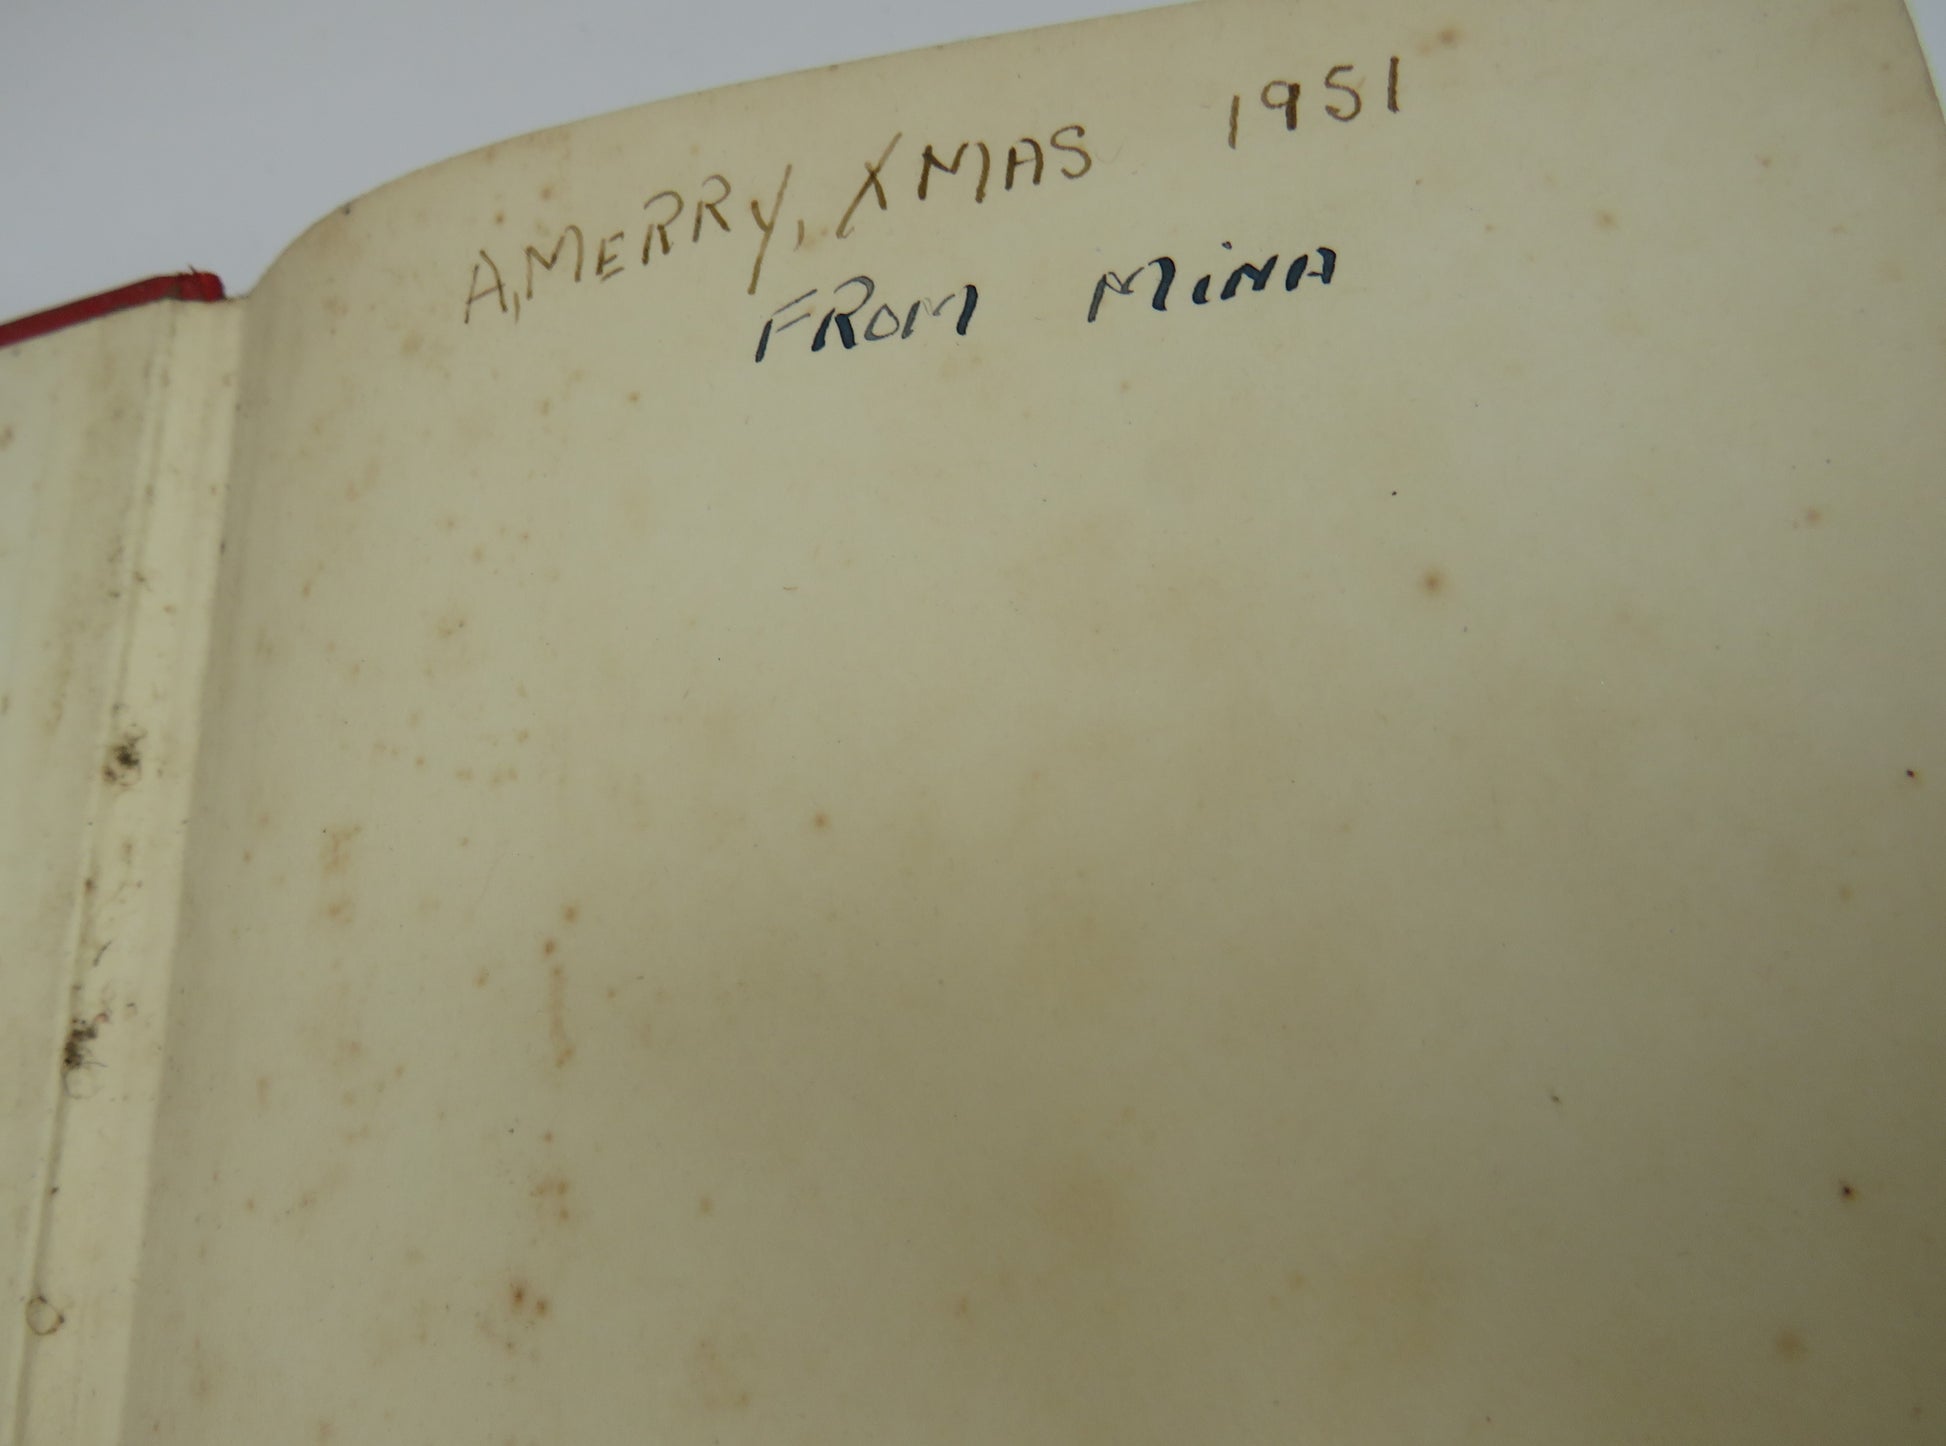 A, MERRY, XMAS 1951
FROM MiNA